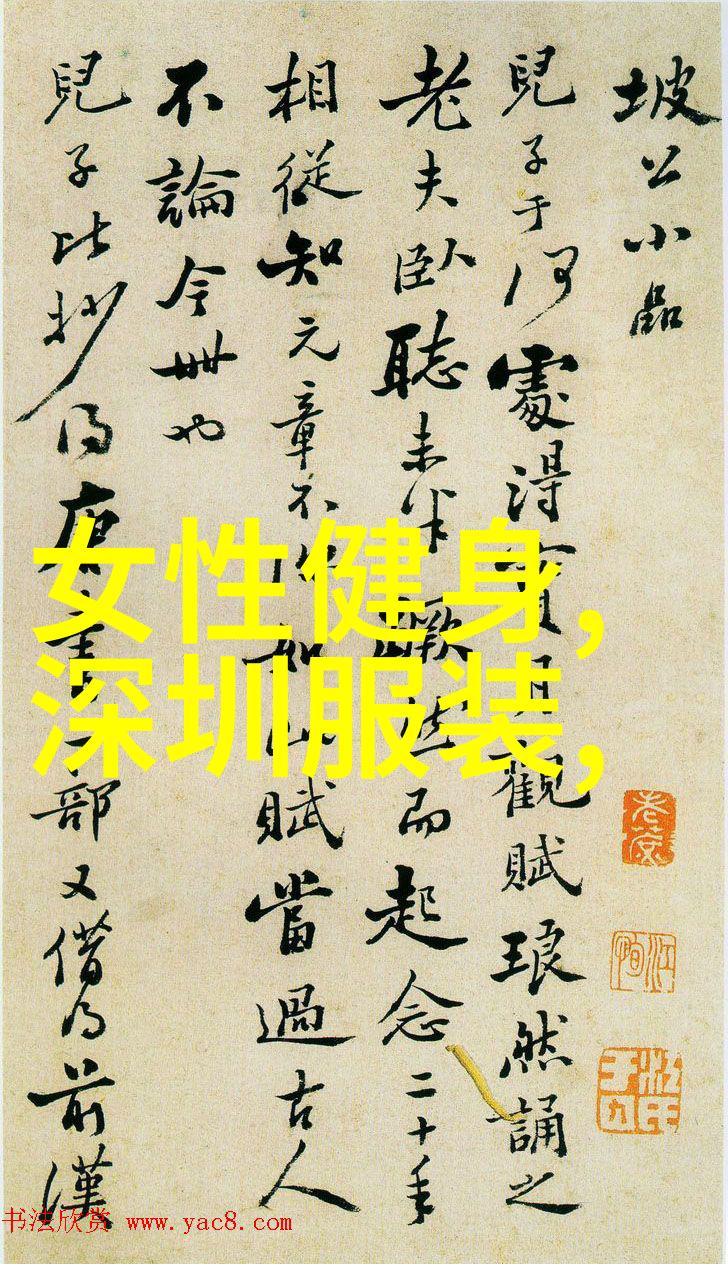 坡公小品
兒子于何處得寶月觀賦琅然誦之
老夫臥聽未半蹶然而起念二十年
相從知元章不如此賦當過古人
不論今世也
兒子比抄得唐書一部又借得前漢
女性健身,
深圳服装,
书法欣赏 www.yac8.com